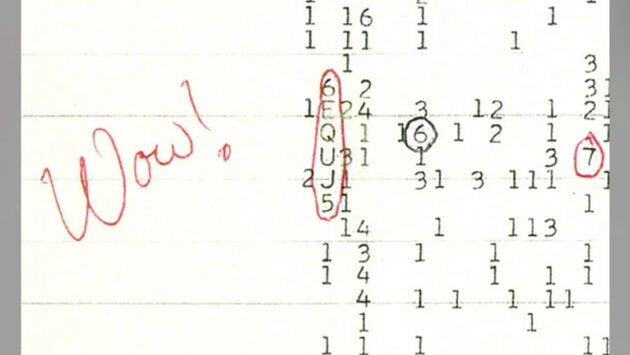 Wow!
1 16 1 1
1 11 1 1
1 3
6 2 31
1 E24 3 12 1 21
Q 1 16 1 2 1 1
U31 1 3 7
2 J1 31 3 111 1
51 1
14 1 113
1 3 1 1 1
1 4 1 1 1
4 1 1 1 11
1 1
1 1 1 11